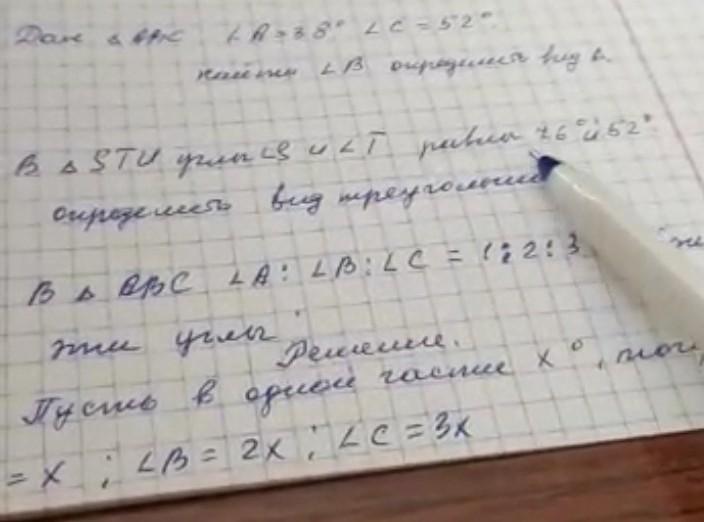 Дан △ ABC ∠A=38° ∠C=52°.
найти ∠B определить вид △.
В △ STU углы ∠S и ∠T равны 76° и 52°
определить вид треугольни
В △ ABC ∠A : ∠B : ∠C = 1:2:3
эти углы.
Решение.
Пусть в одной части x°,
= x ; ∠B = 2x ; ∠C = 3x